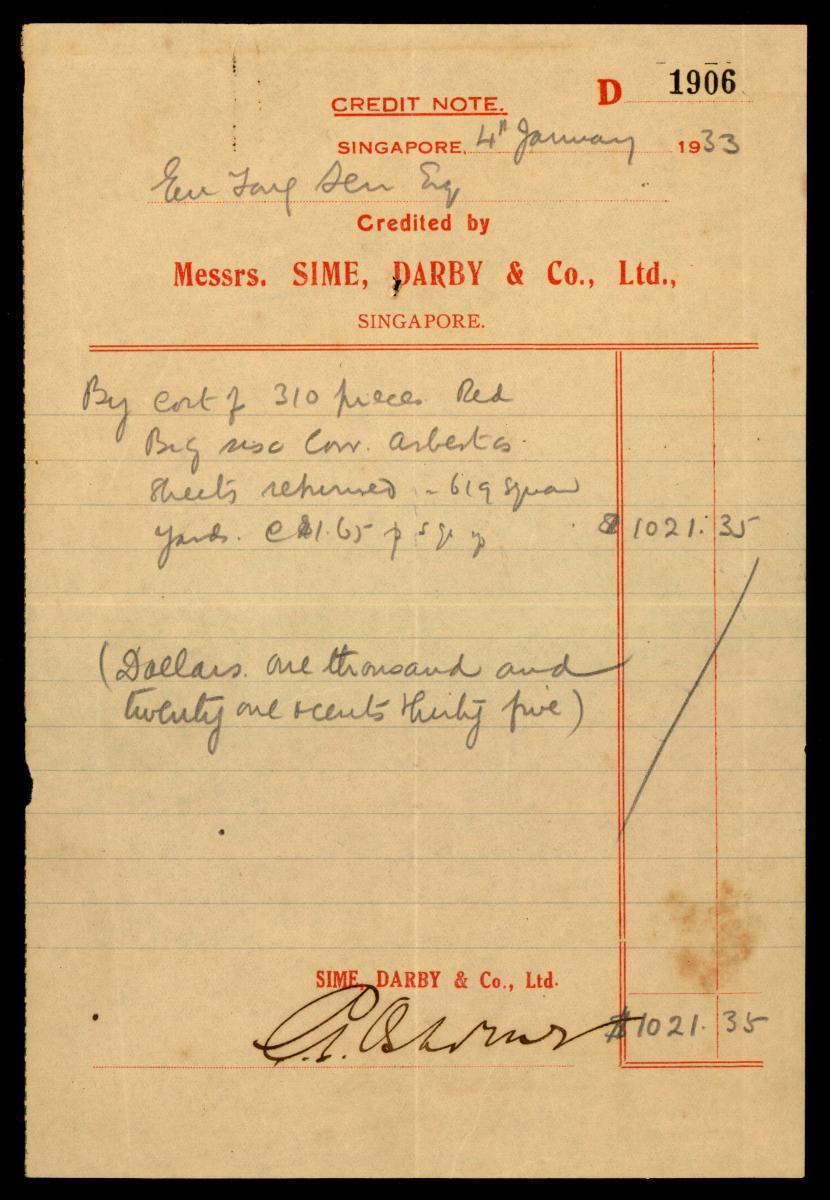 D 1906
CREDIT NOTE.
SINGAPORE, 4th January 1933
Eu Tong Sen Esq
Credited by
Messrs. SIME, DARBY & Co., Ltd.,
SINGAPORE.
By cost of 310 pieces Red
Big six Corr. Asbestos
Sheets returned - 619 square
yards. @ $1.65 p sq. y $1021.35
(Dollars one thousand and
twenty one & cents thirty five)
SIME, DARBY & Co., Ltd.
$1021.35